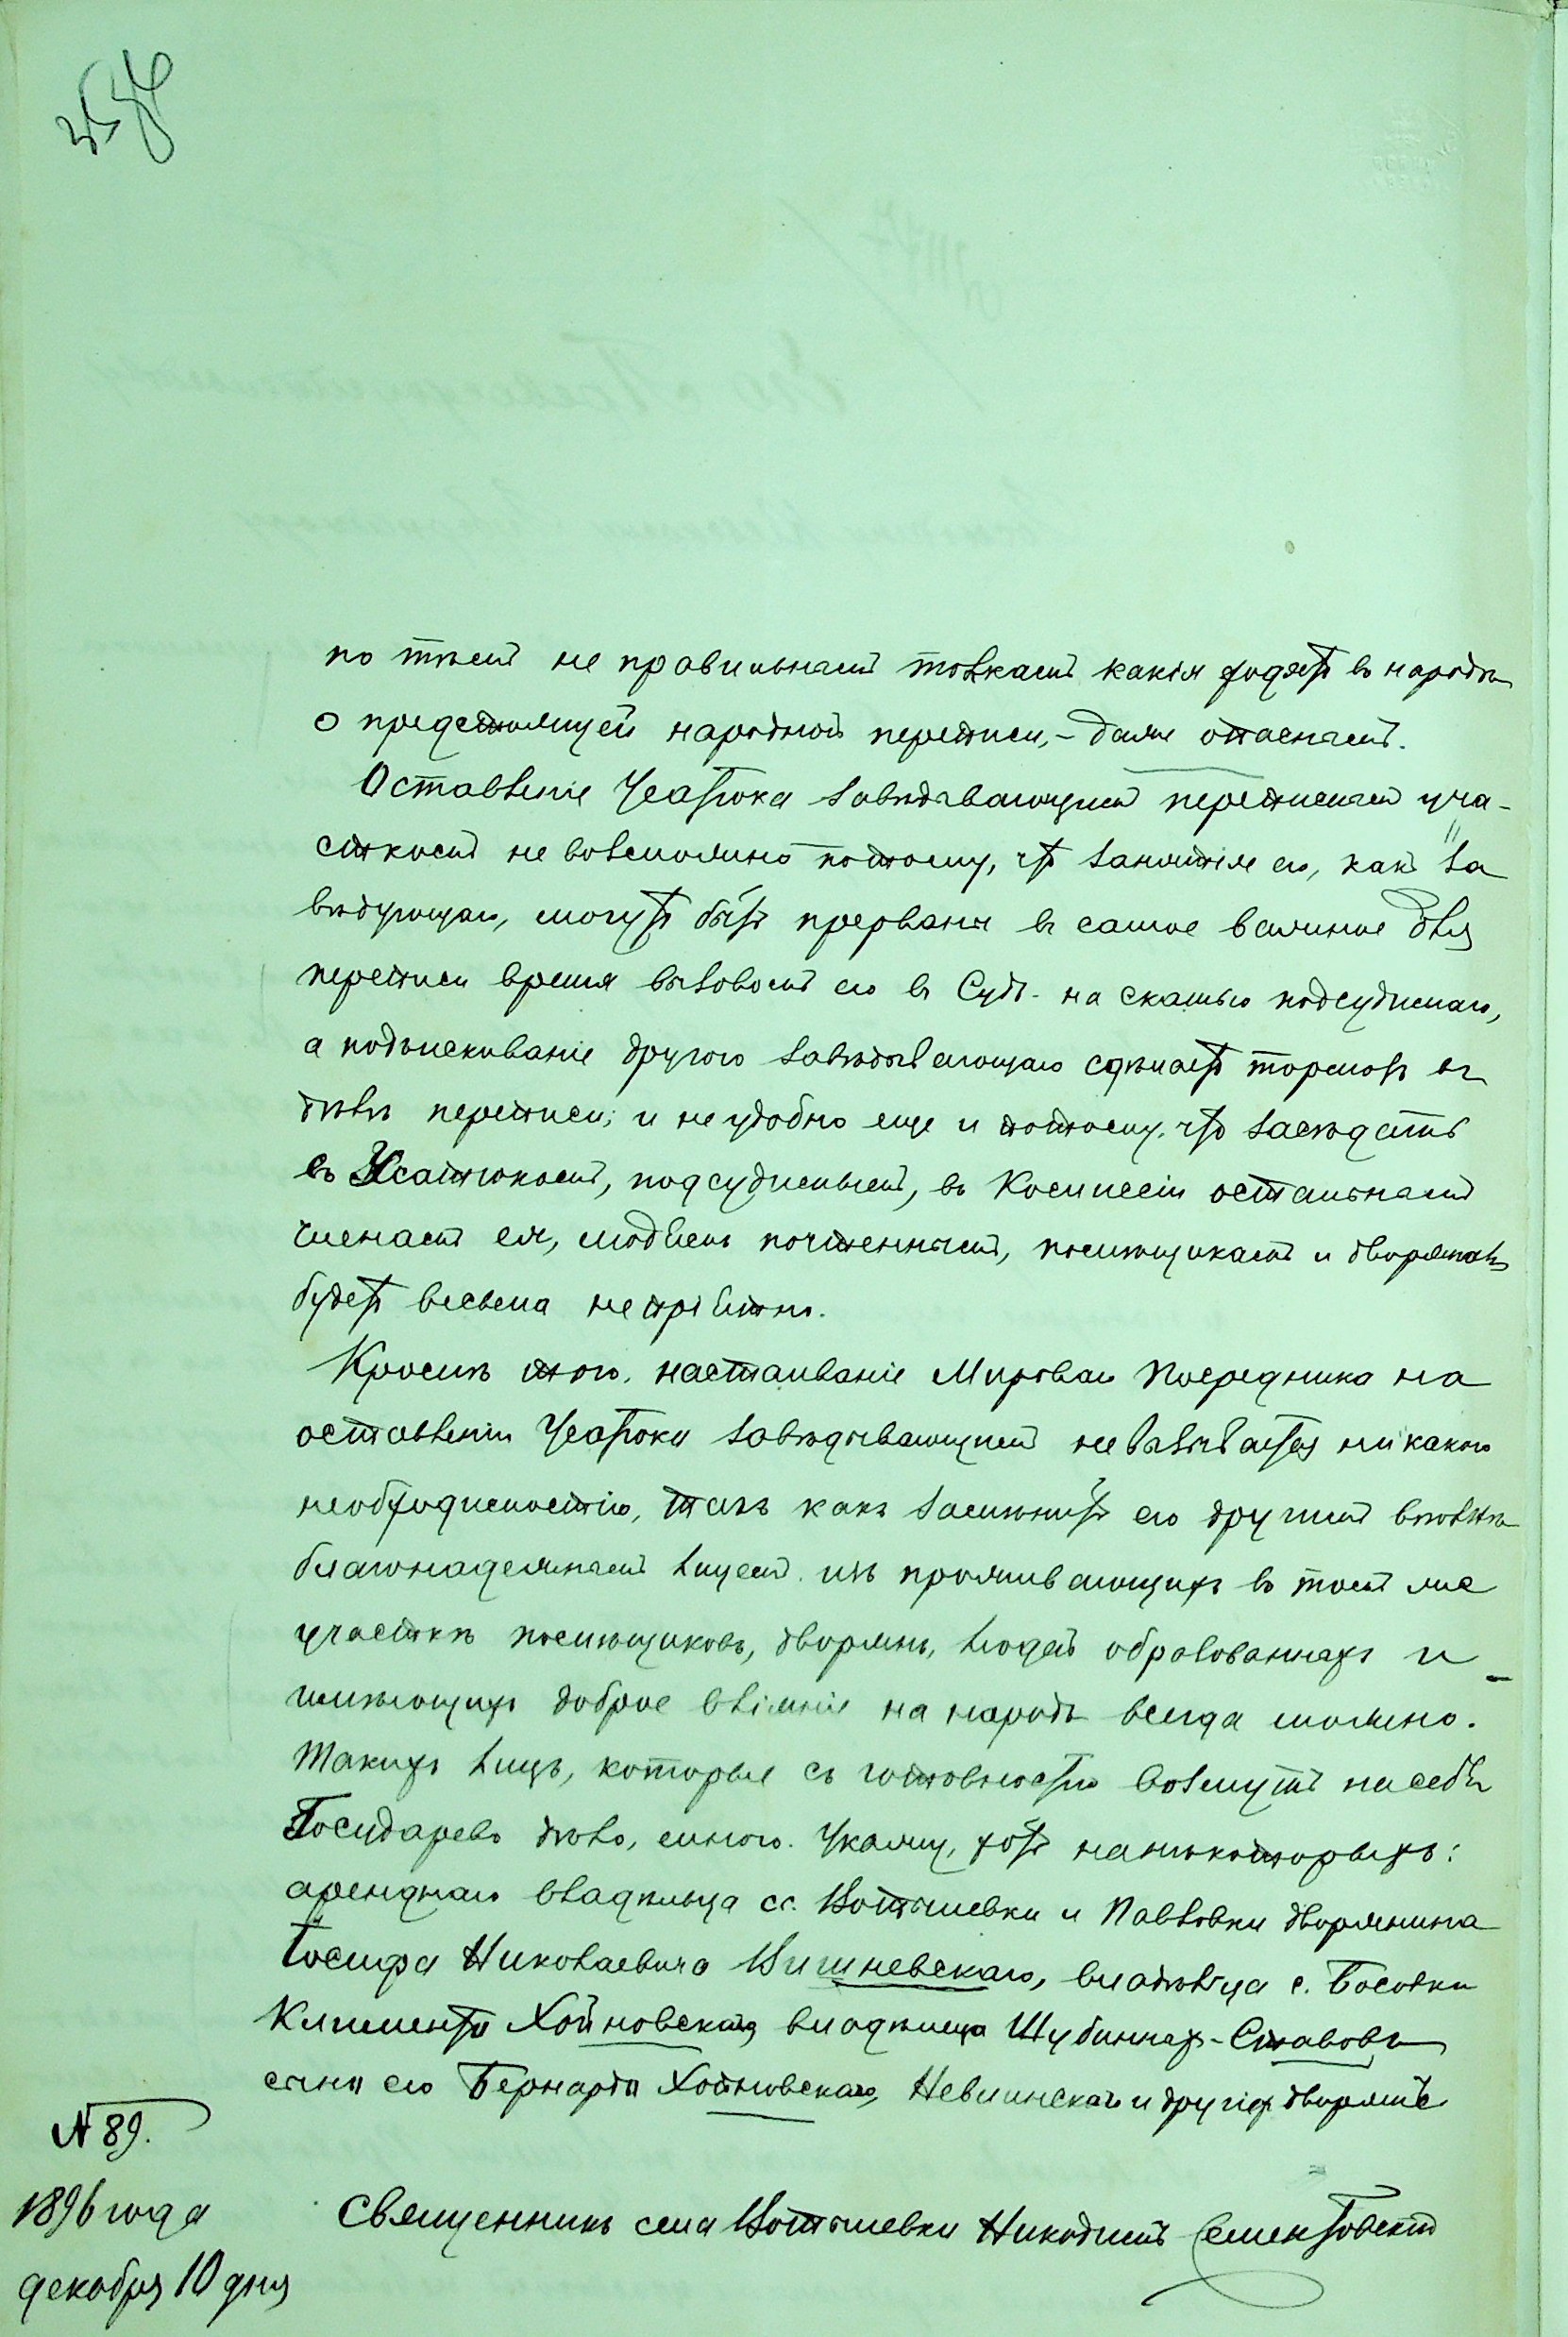 по тѣмъ не правильнымъ толкамъ какія ходятъ въ народѣ
о предстоящей народной переписи, – даже опаснымъ.
Оставленіе Усатюка завѣдывающимъ переписнымъ уча-
сткомъ не возможно потому, что занятія его, какъ за
вѣдующаго, могутъ быть прерваны въ самое важное для
переписи время вызовомъ его въ Судъ – на скамью подсудимаго,
а подыскиваніе другого завѣдывающаго сдѣлаетъ тормозъ въ
дѣлѣ переписи; и не удобно еще и потому, что засѣдать
съ Усатюкомъ, подсудимымъ, въ Коммиссіи остальнымъ
членамъ ея, людямъ почтеннымъ, помѣщикамъ и дворянамъ
будетъ весьма непріятно.
Кромѣ того, настаиваніе Мирового Посредника на
оставленіи Усатюка завѣдывающимъ не вызывается никакою
необходимостію, такъ какъ замѣнить его другимъ вполнѣ
благонадежнымъ лицемъ изъ проживающихъ въ томъ же
участкѣ помѣщиковъ, дворянъ, людей образованныхъ и
имѣющихъ доброе вліяніе на народъ всегда можно.
Такихъ лицъ, которые съ готовностію возмутъ на себя
Государево дѣло, много. Укажу, хоть на нѣкоторыхъ:
аренднаго владѣльца сс. Вотылевки и Павловки дворянина
Іосифа Николаевича Вишневскаго, владѣльца с. Босовки
Климента Хойновскаго, владѣльца Шубиныхъ-Ставовъ
сына его Бернарда Хойновскаго, и другихъ дворянъ
Священникъ села Вотылевки Никодимъ Сементовскій
№ 89.
1896 года
декабря 10 дня